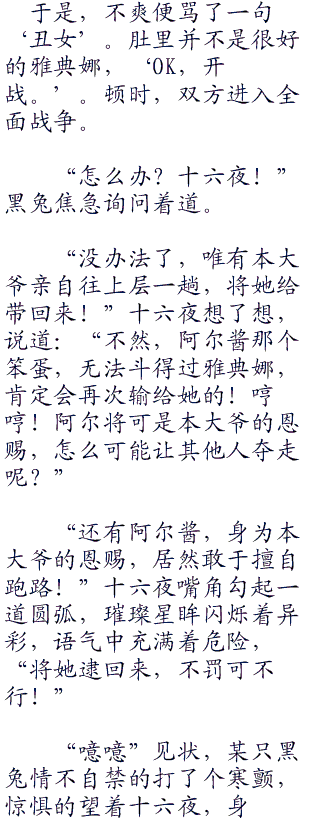 于是，不爽便骂了一句
‘丑女’。肚里并不是很好
的雅典娜，‘OK，开
战。’。顿时，双方进入全
面战争。
“怎么办？十六夜！”
黑兔焦急询问着道。
“没办法了，唯有本大
爷亲自往上层一趟，将她给
带回来！”十六夜想了想，
说道：“不然，阿尔酱那个
笨蛋，无法斗得过雅典娜，
肯定会再次输给她的！哼
哼！阿尔将可是本大爷的恩
赐，怎么可能让其他人夺走
呢？”
“还有阿尔酱，身为本
大爷的恩赐，居然敢于擅自
跑路！”十六夜嘴角勾起一
道圆弧，璀璨星眸闪烁着异
彩，语气中充满着危险，
“将她逮回来，不罚可不
行！”
“噫噫”见状，某只黑
兔情不自禁的打了个寒颤，
惊惧的望着十六夜，身